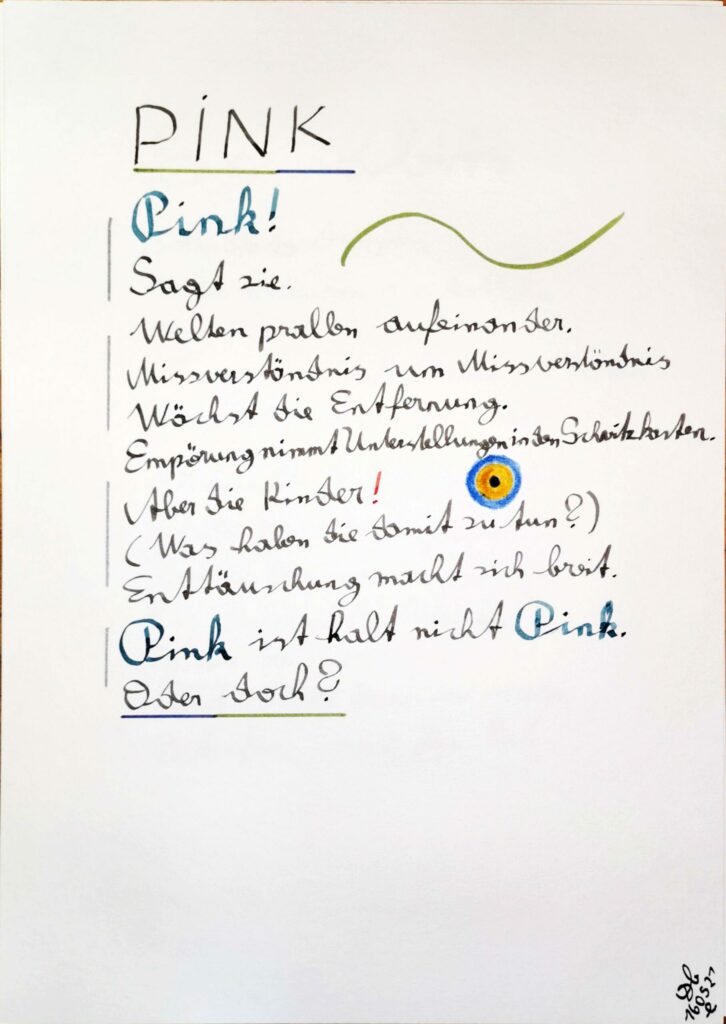 PINK
Pink!
Sagt sie.
Welten prallen aufeinander.
Missverständnis um Missverständnis
Wächst die Entfernung.
Empörung nimmt Unterstellungen in den Schwitzkasten.
Aber die Kinder!
(Was haben die damit zu tun?)
Enttäuschung macht sich breit.
Pink ist halt nicht Pink.
Oder doch?
160521